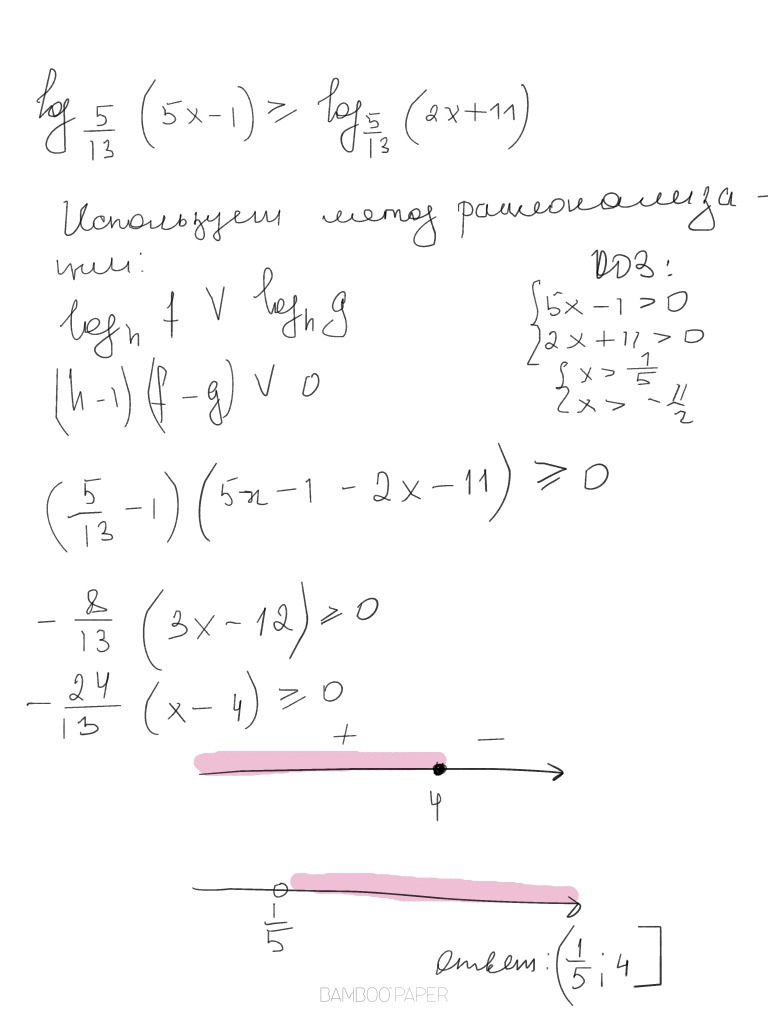 log 5/13 (5x-1) ≥ log 5/13 (2x+11)
Используем метод рационализа-
ции:
ОДЗ:
log_h f ∨ log_h g
{5x-1>0
{2x+11>0
(h-1)(f-g) ∨ 0
{x>1/5
{x>-11/2
(5/13-1)(5x-1-2x-11) ≥ 0
-8/13 (3x-12) ≥ 0
-24/13 (x-4) ≥ 0
+ −
4
1/5
ответ: (1/5; 4]
BAMBOO PAPER